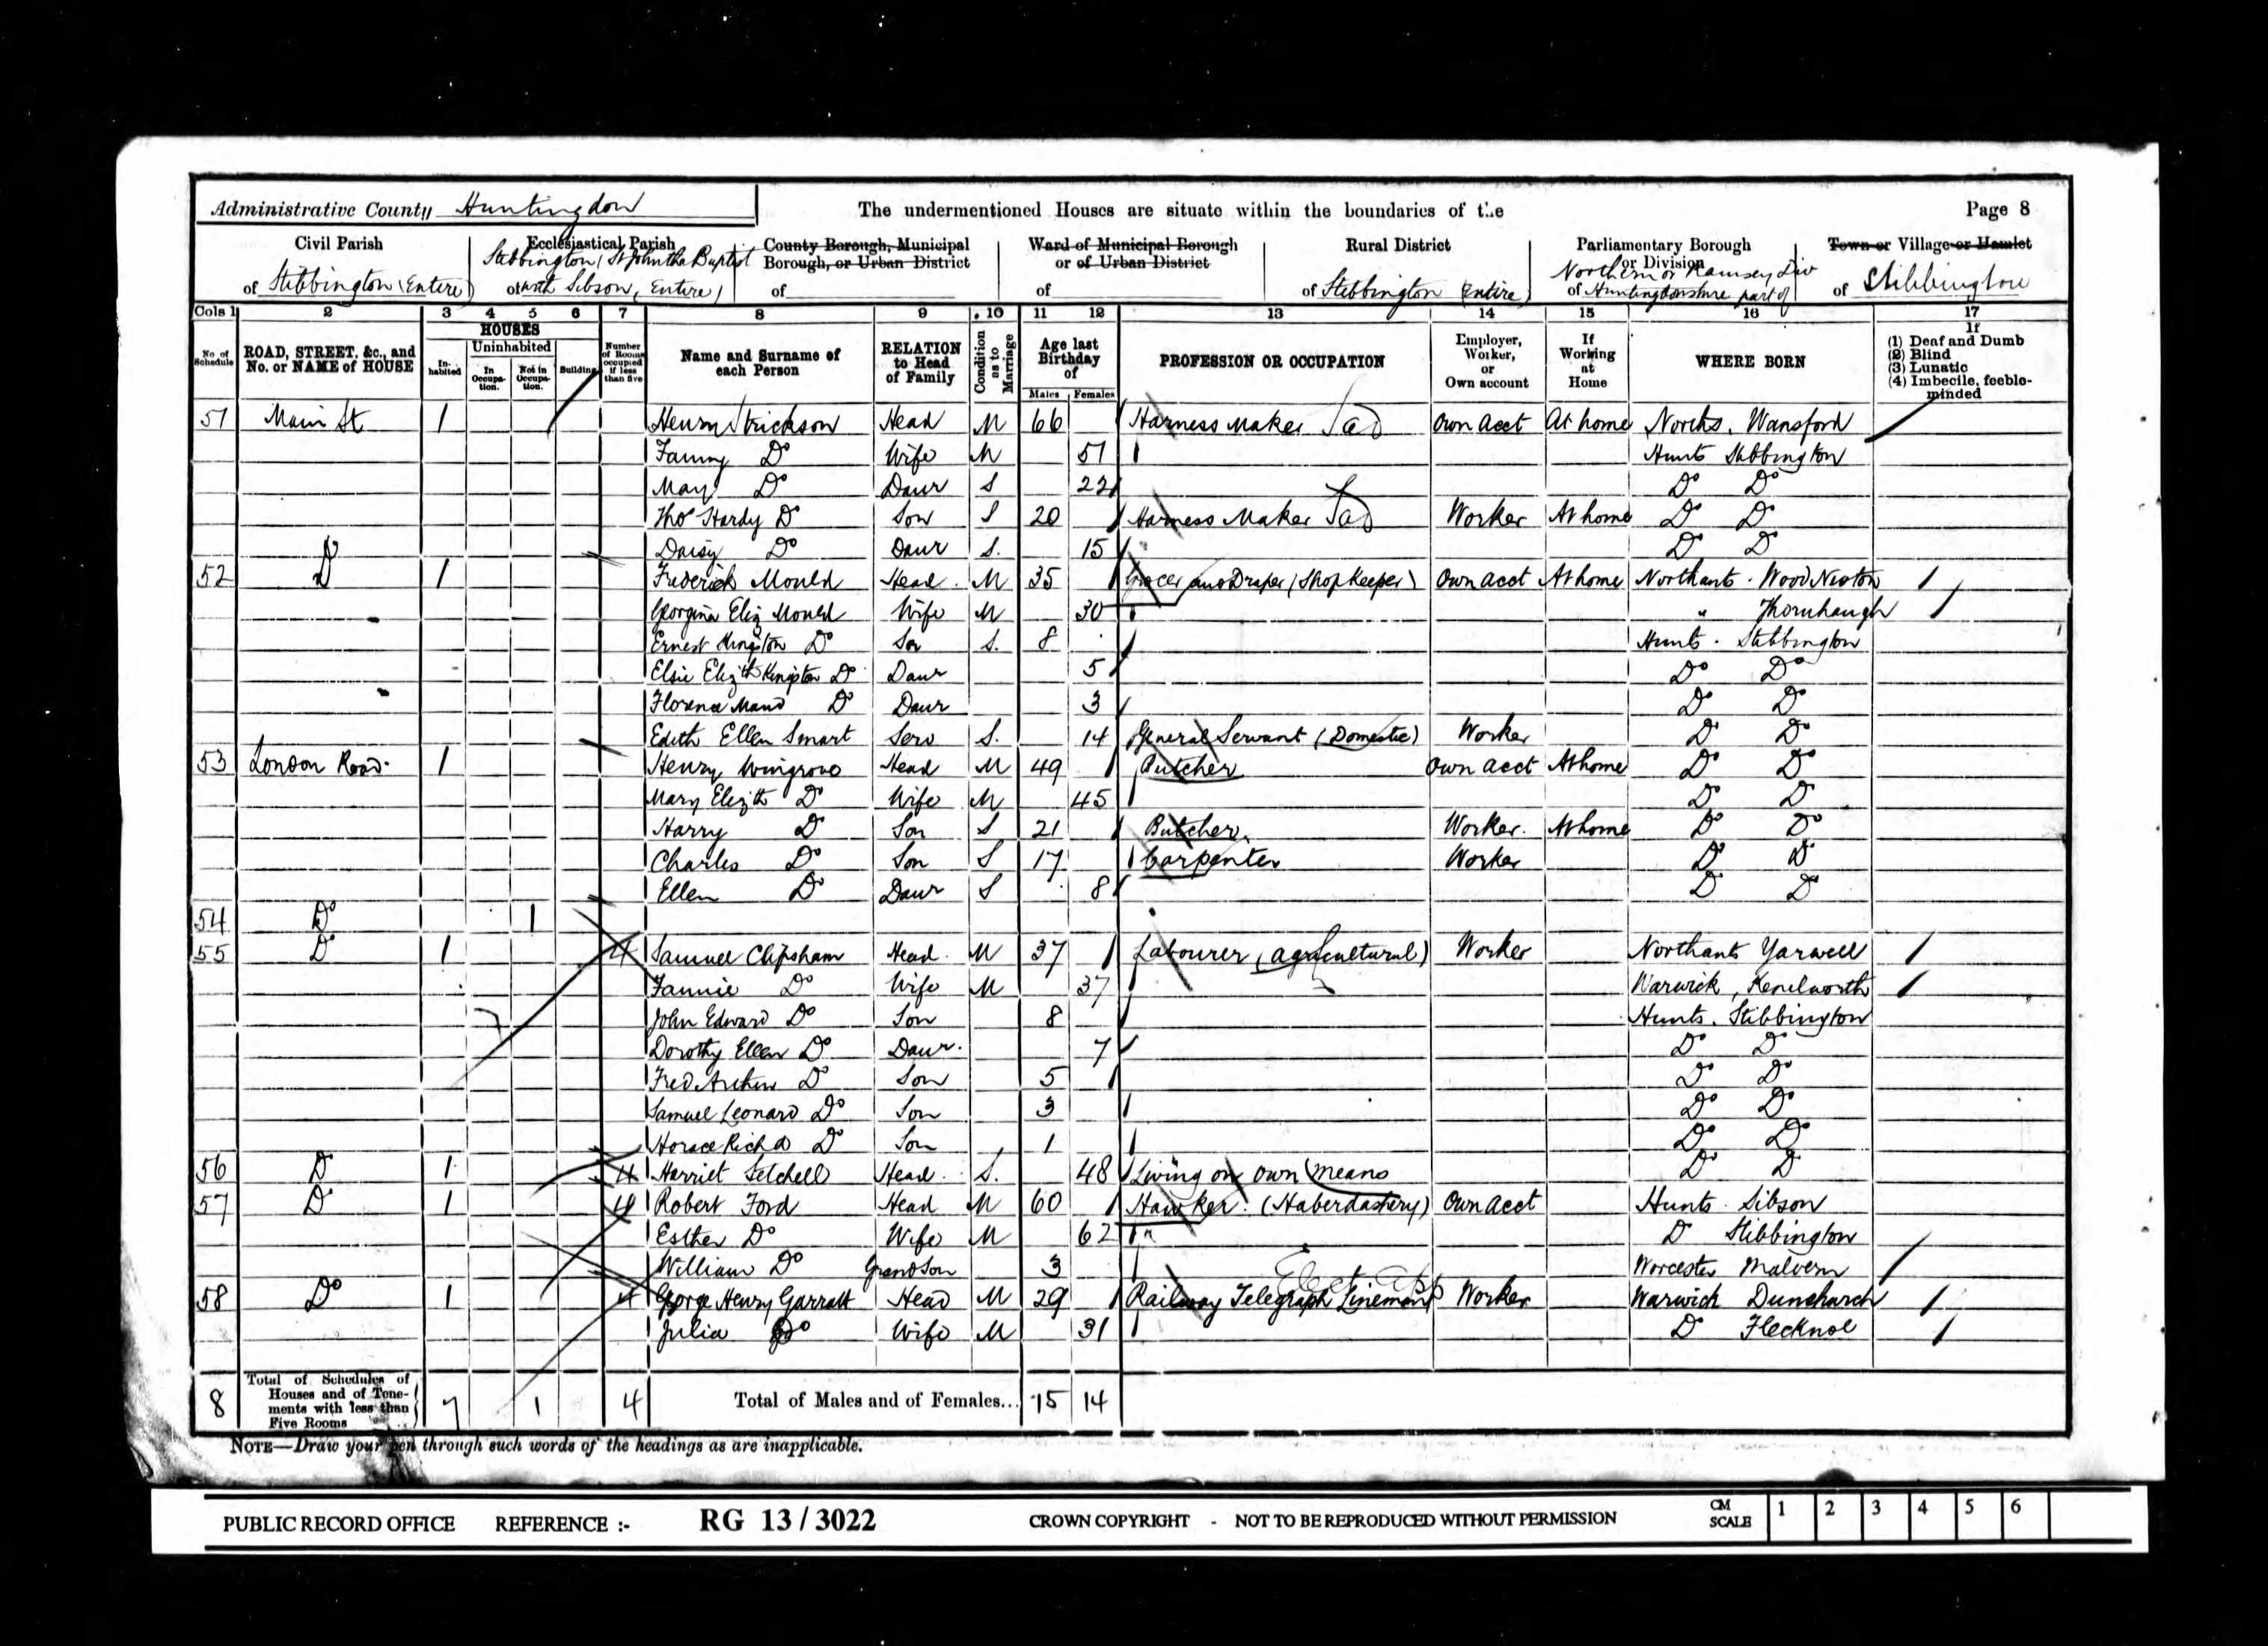 Administrative County Huntingdon The undermentioned Houses are situate within the boundaries of the Page 8
Civil Parish of Stibbington (Entire)
Ecclesiastical Parish of Stibbington (St John the Baptist with Sibson, Entire)
County Borough, Municipal Borough, or Urban District of
Ward of Municipal Borough or of Urban District of
Rural District of Stibbington (Entire)
Parliamentary Borough or Division of Northern or Ramsey Div Huntingdonshire part of
Town or Village or Hamlet of Stibbington
Cols 1 2 3 4 5 6 7 8 9 10 11 12 13 14 15 16 17
No of Schedule
ROAD, STREET, &c., and No. or NAME of HOUSE
HOUSES
In-habited
Uninhabited
In Occupa-tion.
Not in Occupa-tion.
Building
Number of Rooms occupied if less than five
Name and Surname of each Person
RELATION to Head of Family
Condition as to Marriage
Age last Birthday of
Males Females
PROFESSION OR OCCUPATION
Employer, Worker, or Own account
If Working at Home
WHERE BORN
If (1) Deaf and Dumb (2) Blind (3) Lunatic (4) Imbecile, feeble-minded
51 Main St 1 Henry Head M 66 Harness Maker Sad Own acct At home Norths. Wansford
Fanny Do Wife M 51 Hunts Stibbington
May Do Daur S 22 Do Do
Thos Hardy Do Son S 20 Harness Maker Sad Worker At home Do Do
Daisy Do Daur S. 15 Do Do
52 Do 1 Frederick Mould Head M 35 Grocer and Draper (Shop Keeper) Own acct At home Northants. Wood Newton
Georgina Eliz Mould Wife M 30 " Thornhaugh
Ernest Kingston Do Son S. 8 Hunts. Stibbington
Elsie Elizth Kingston Do Daur 5 Do Do
Florence Maud Do Daur 3 Do Do
Edith Ellen Smart Serv S. 14 General Servant (Domestic) Worker Do Do
53 London Road. 1 Henry Wingrove Head M 49 Butcher Own acct At home Do Do
Mary Elizth Do Wife M 45 Do Do
Harry Do Son S 21 Butcher Worker. At home Do Do
Charles Do Son S 17 Carpenter Worker Do Do
Ellen Do Daur S 8 Do Do
54 Do 1
55 Do 1 4 Samuel Clipsham Head M 37 Labourer (agricultural) Worker Northants Yarwell
Fannie Do Wife M 37 Warwick, Kenilworth
John Edward Do Son 8 Hunts. Stibbington
Dorothy Ellen Do Daur. 7 Do Do
Fred Arthur Do Son 5 Do Do
Samuel Leonard Do Son 3 Do Do
Horace Richd Do Son 1 Do Do
56 Do 1 4 Harriet Setchell Head S. 48 Living on own means Do Do
57 Do 1 4 Robert Ford Head M 60 Hawker (Haberdashery) Own acct Hunts. Sibson
Esther Do Wife M 62 Do Stibbington
William Do GrandSon 3 Worcester Malvern
58 Do 1 4 George Henry Garratt Head M 29 Railway Telegraph Lineman Elect App Worker Warwick Dunchurch
Julia Do Wife M 31 Do Flecknoe
8 Total of Schedules of Houses and of Tene-ments with less than Five Rooms 7 1 4 Total of Males and of Females... 15 14
NOTE—Draw your pen through such words of the headings as are inapplicable.
PUBLIC RECORD OFFICE REFERENCE :- RG 13 / 3022 CROWN COPYRIGHT - NOT TO BE REPRODUCED WITHOUT PERMISSION CM SCALE 1 2 3 4 5 6